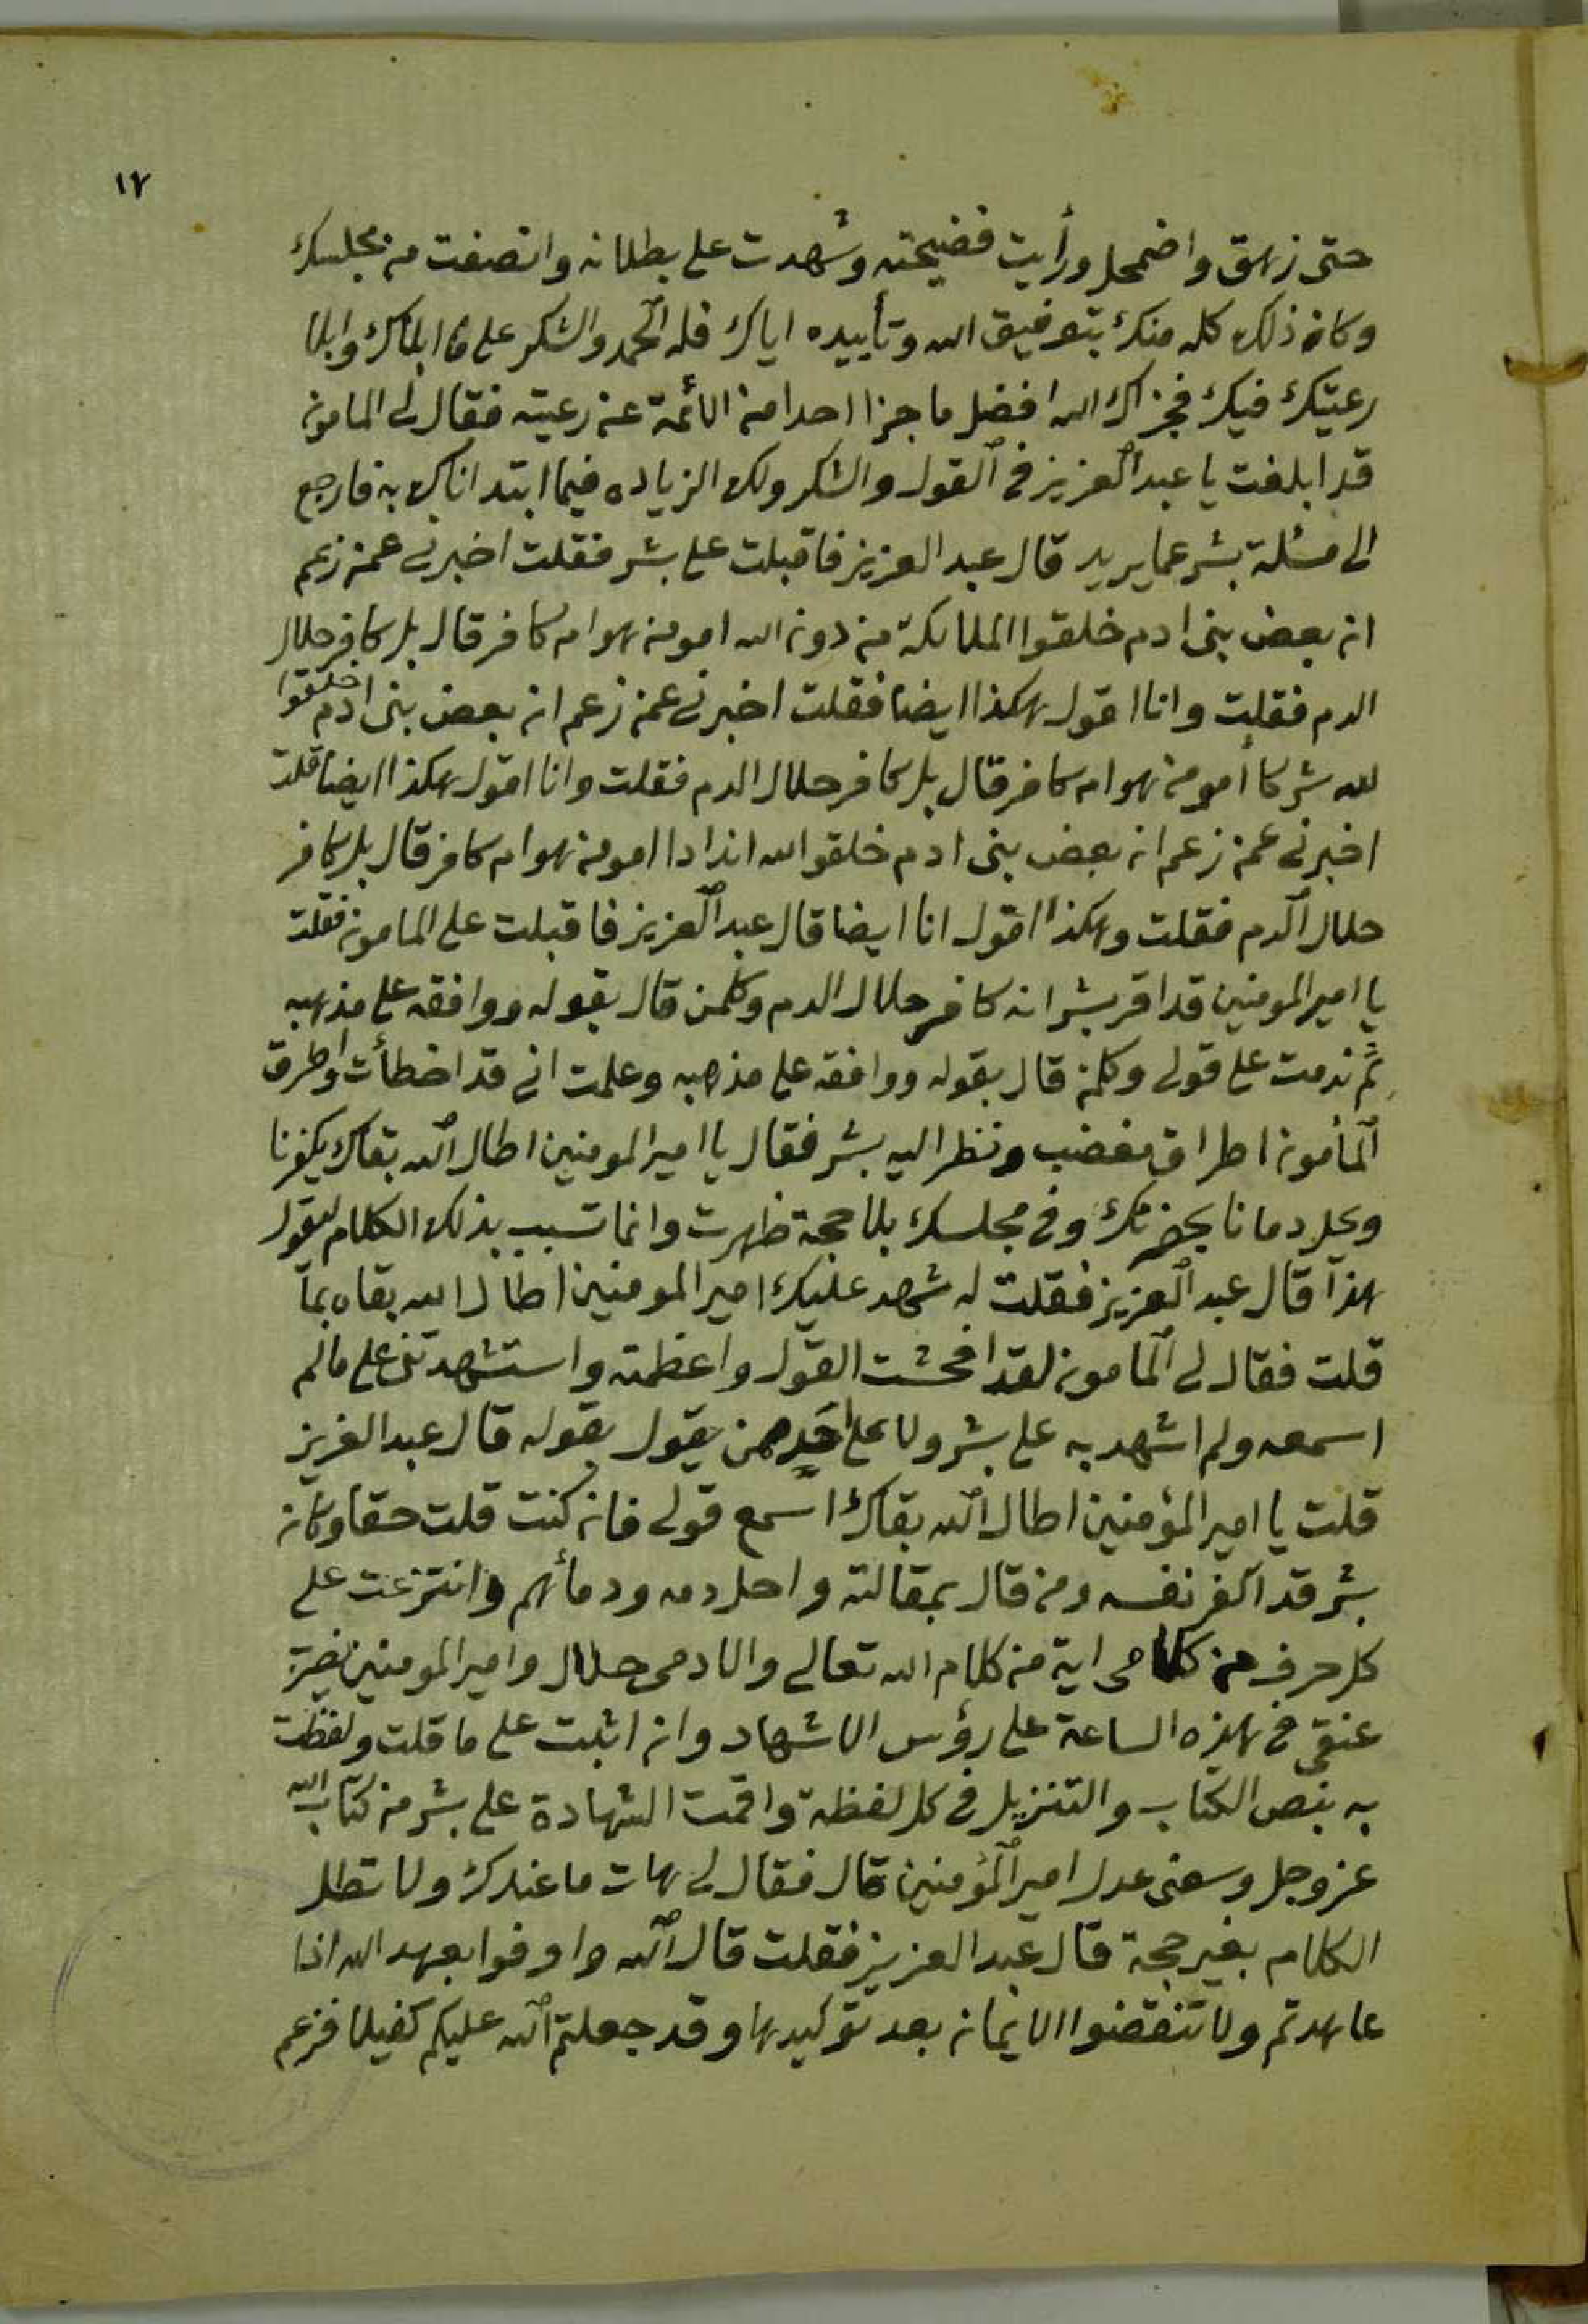 ١٧
حتى زهق واضمحل ورأيت فضيحته وشهدت على بطلانه وانصفت من مجلسك
وكان ذلك كله منك بتوفيق الله وتأييده اياك فله الحمد والشكر على ما ابلاك وابلا
رعيتك فيك فجزاك الله افضل ما جزا احدا من الأئمة عن رعيته فقال لي المامون
قد ابلغت يا عبد العزيز في القول والشكر ولك الزياده فيما ابتداناك به فارجع
الى مسئلة بشر عما يريد قال عبد العزيز فاقبلت على بشر فقلت اخبرني عمن زعم
ان بعض بنى ادم خلقوا الملائكة من دون الله امومن هو ام كافر قال بل كافر حلال
الدم فقلت وانا اقول هكذا ايضا فقلت اخبرني عمن زعم ان بعض بنى ادم خلقوا
لله شركا أمومن هو ام كافر قال بل كافر حلال الدم فقلت وانا اقول هكذا ايضا قلت
اخبرني عمن زعم ان بعض بنى ادم خلقوا لله اندادا امومن هو ام كافر قال بل كافر
حلال الدم فقلت وهكذا اقول انا ايضا قال عبد العزيز فاقبلت على المامون فقلت
يا امير المومنين قد اقر بشر انه كافر حلال الدم وكلمن قال بقوله ووافقه على مذهبه
ثم ندمت على قولى وكلمن قال بقوله ووافقه على مذهبه وعلمت اني قد اخطأت واطرق
المأمون اطراق مغضب ونظر اليه بشر فقال يا امير المومنين اطال الله بقاك يكفرنا
ويحل دمانا بحضرتك وفى مجلسك بلا حجة ظهرت وانما تسبب بذلك الكلام ليقول
هذا قال عبد العزيز فقلت له شهد عليك امير المومنين اطال الله بقاه بما
قلت فقال لي المامون لقد افحشت القول واعظمته واستشهدتنى على مالم
اسمعه ولم اشهد به على بشر ولا على احد ممن يقول بقوله قال عبد العزيز
قلت يا امير المؤمنين اطال الله بقاك اسمع قولى فان كنت قلت حقا وكان
بشر قد اكفر نفسه ومن قال بمقالته واحل دمه ودمأهم وانتزعت على
كل حرف من كلامى اية من كلام الله تعالى والا دمى حلال وامير المومنين بضرب
عنقى في هذه الساعة على رؤس الاشهاد وان اثبت على ما قلت ولفظت
به بنص الكتاب والتنزيل في كل لفظة واقمت الشهادة على بشر من كتاب الله
عزوجل وسعنى عدل امير المؤمنين قال فقال لي هات ما عندك ولا تطل
الكلام بغير حجة قال عبد العزيز فقلت قال الله واوفوا بعهد الله اذا
عاهدتم ولا تنقضوا الايمان بعد توكيدها وقد جعلتم الله عليكم كفيلا فزعم